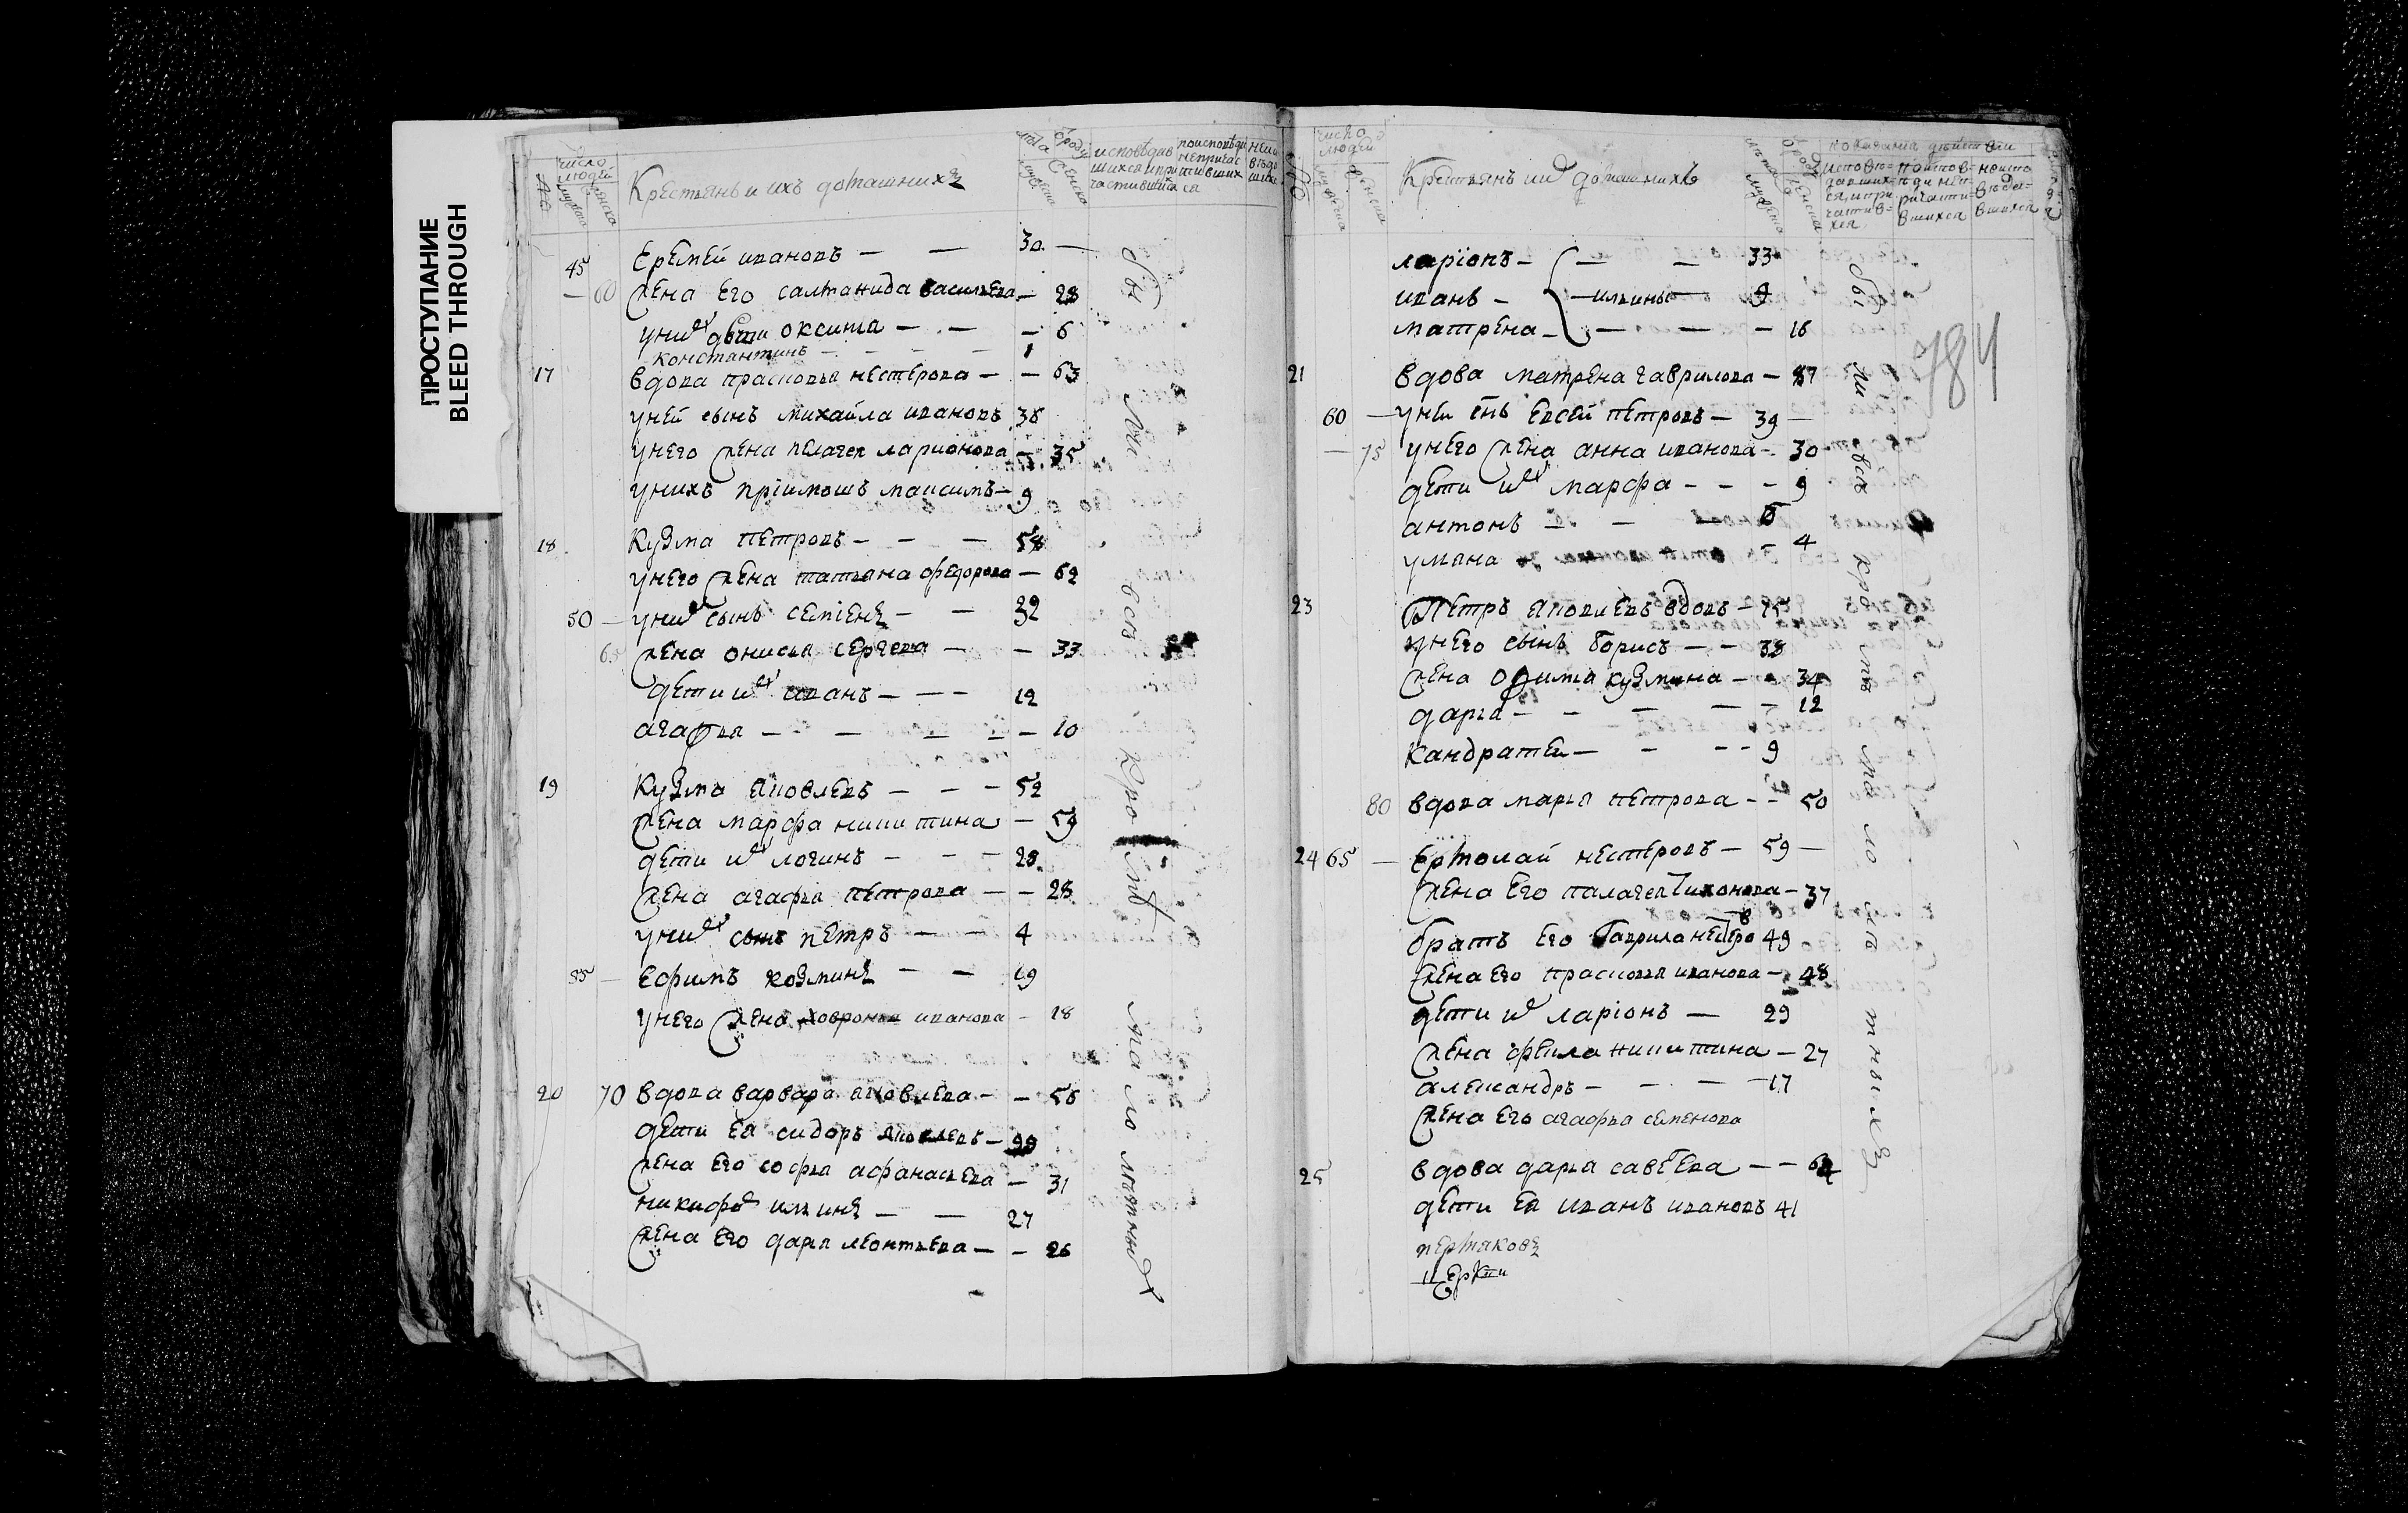 ПРОСТУПАНИЕ
BLEED THROUGH
число людей
мужеска
женска
Крестьянъ и ихъ домашнихъ
лѣта от роду
мужеска
женска
исповѣдав шихся и при частившихся
поисповѣди неприча стившихся
45 Еремей ивановъ — — 30 —
— 60 жена Его салманида васильева — 28
у них дѣти оксинья — — — 6
константинъ — — — — 1
17 вдова прасковья нестерова — — 63
у ней сынъ михайла ивановъ 38
у него жена пелагея ларионова — 35
у нихъ приимошъ максимъ — 9
18 Кузма петровъ — — — 58
у него жена татьяна федорова — 62
50 — у них сынъ семiенъ — — 32
65 жена онисья сергеева — — 33
дети их иванъ — — — 12
агафья — — — — — 10
19 Кузма яковлевъ — — — 52
жена марфа никитина — 59
дети их логинъ — — — 28
жена агафья петрова — — 28
у них сынъ петръ — — 4
55 — ефимъ козминъ — — 19
у него жена ховронья иванова — 18
20 70 вдова варвара яковлева — — 58
дети ея сидоръ яковлевъ —
жена его софья афанасьева — 31
никифор ильинъ — — 27
жена его дарья леонтьева — — 26
бы ли всѣ кро мѣ ма ло лѣтных
число людей
мужеска
женска
Крестьянъ их домашнихъ
лѣта от роду
мужеска
женска
показание дѣйствии
исповѣ- давших- ся и при- частив- хся
поиспов- ѣди неп- ричасти- вшихся
неиспо вѣдо- вшихся
784
ларiонъ — — — 33
иванъ — ильины — 9
матрена — — — — 16
21 вдова матрена гаврилова — 87
60 — у ней снъ евсей петровъ — 39 —
— 75 у него жена анна иванова — 30
дети их марфа — — — 9
антонъ — — — 6
ульяна — 4
23 Петръ яковлевъ вдовъ — 75
у него сынъ борисъ — — 38
жена офимья кузмина — — 34
дарья — — — — — 12
кандратей — — — — 9
80 вдова марья петрова — — 50
24 65 — ермолай нестеровъ — 59 —
жена Его палагея тихонова — 37
братъ его гаврила нестеровъ 49
жена его прасковья иванова — 48
дети их ларiонъ — 29
жена фекла никитина — 27
александръ — — — — 17
жена его агафья семенова
25 вдова дарья савеева — — 62
дети ея иванъ ивановъ 41
пермяковъ
бы ли всѣ кро мѣ ма ло лѣ тныхъ